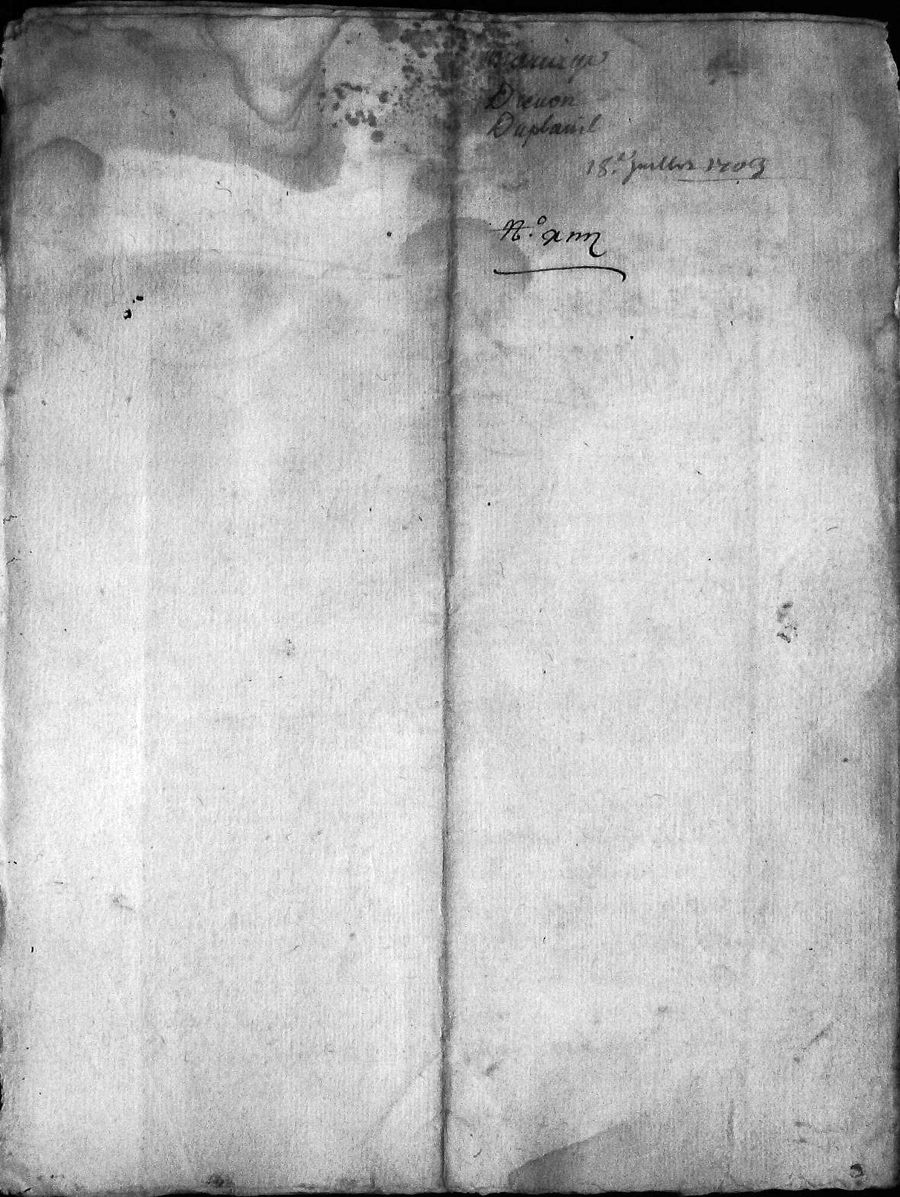 Mariage
Drouon
Duplanil
18.e Juillet 1709
N.o